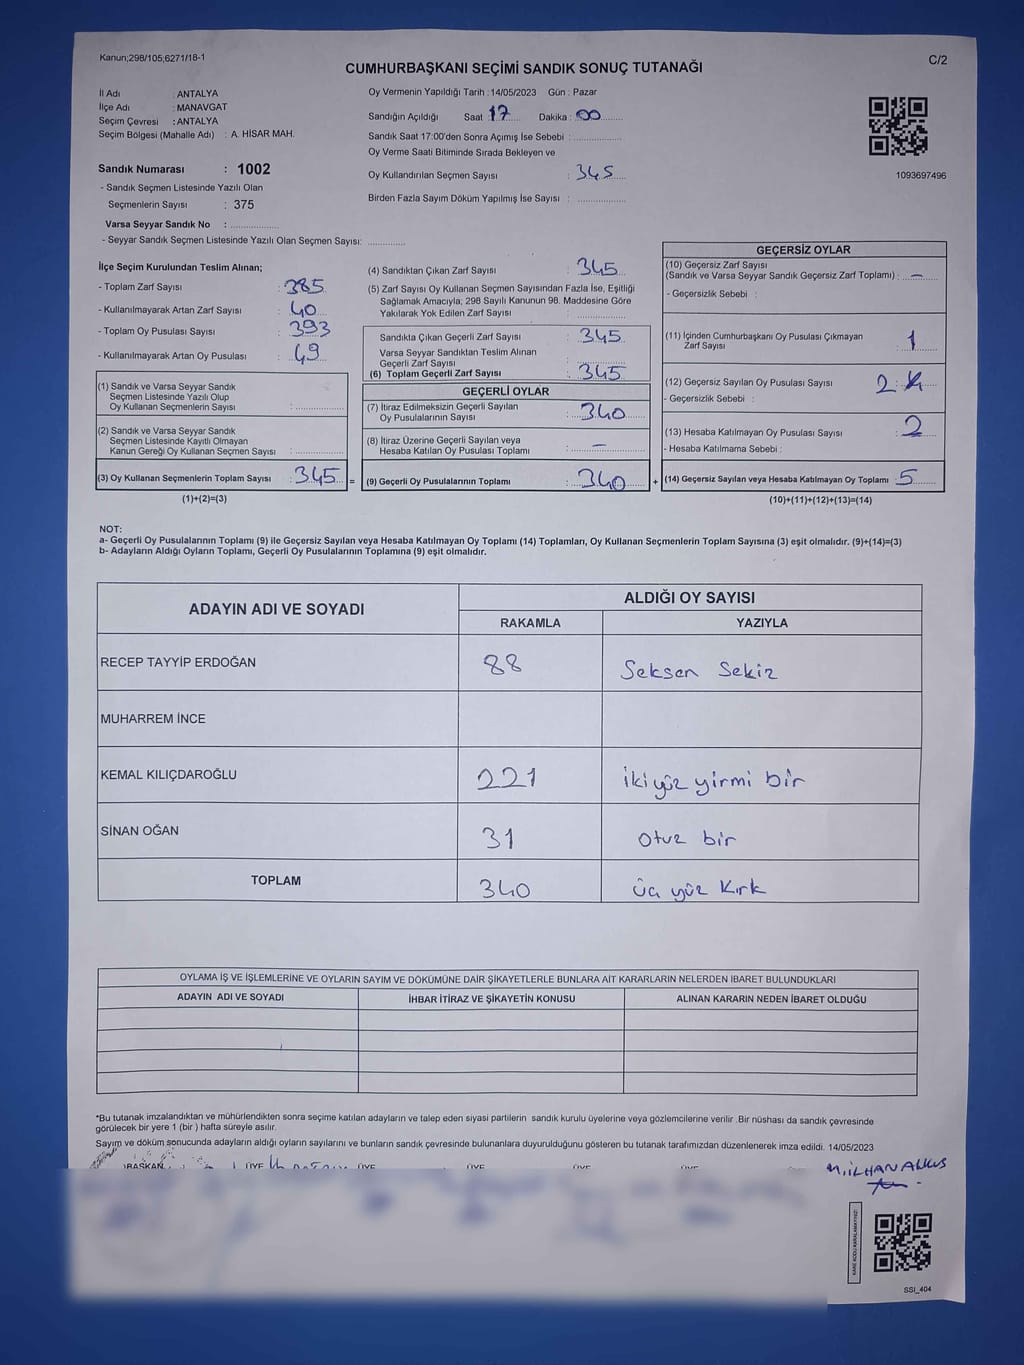 Kanun;298/105;6271/18-1
C/2
CUMHURBAŞKANI SEÇİMİ SANDIK SONUÇ TUTANAĞI
İl Adı : ANTALYA
İlçe Adı : MANAVGAT
Seçim Çevresi : ANTALYA
Seçim Bölgesi (Mahalle Adı) : A. HİSAR MAH.
Oy Vermenin Yapıldığı Tarih : 14/05/2023 Gün : Pazar
Sandığın Açıldığı Saat : 17 Dakika : 00
Sandık Saat 17:00'den Sonra Açımış İse Sebebi :
Oy Verme Saati Bitiminde Sırada Bekleyen ve
Oy Kullandırılan Seçmen Sayısı : 345
Birden Fazla Sayım Döküm Yapılmış İse Sayısı :
1093697496
Sandık Numarası : 1002
- Sandık Seçmen Listesinde Yazılı Olan
Seçmenlerin Sayısı : 375
Varsa Seyyar Sandık No :
- Seyyar Sandık Seçmen Listesinde Yazılı Olan Seçmen Sayısı:
İlçe Seçim Kurulundan Teslim Alınan;
- Toplam Zarf Sayısı : 385
- Kullanılmayarak Artan Zarf Sayısı : 40
- Toplam Oy Pusulası Sayısı : 393
- Kullanılmayarak Artan Oy Pusulası : 49
(1) Sandık ve Varsa Seyyar Sandık
Seçmen Listesinde Yazılı Olup
Oy Kullanan Seçmenlerin Sayısı :
(2) Sandık ve Varsa Seyyar Sandık
Seçmen Listesinde Kayıtlı Olmayan
Kanun Gereği Oy Kullanan Seçmen Sayısı :
(3) Oy Kullanan Seçmenlerin Toplam Sayısı : 345 =
(1)+(2)=(3)
(4) Sandıktan Çıkan Zarf Sayısı : 345
(5) Zarf Sayısı Oy Kullanan Seçmen Sayısından Fazla İse, Eşitliği
Sağlamak Amacıyla; 298 Sayılı Kanunun 98. Maddesine Göre
Yakılarak Yok Edilen Zarf Sayısı :
Sandıkta Çıkan Geçerli Zarf Sayısı : 345
Varsa Seyyar Sandıktan Teslim Alınan
Geçerli Zarf Sayısı :
(6) Toplam Geçerli Zarf Sayısı : 345
GEÇERLİ OYLAR
(7) İtiraz Edilmeksizin Geçerli Sayılan
Oy Pusulalarının Sayısı : 340
(8) İtiraz Üzerine Geçerli Sayılan veya
Hesaba Katılan Oy Pusulası Toplamı : —
(9) Geçerli Oy Pusulalarının Toplamı : 340 +
GEÇERSİZ OYLAR
(10) Geçersiz Zarf Sayısı
(Sandık ve Varsa Seyyar Sandık Geçersiz Zarf Toplamı) : —
- Geçersizlik Sebebi :
(11) İçinden Cumhurbaşkanı Oy Pusulası Çıkmayan
Zarf Sayısı : 1
(12) Geçersiz Sayılan Oy Pusulası Sayısı : 2
- Geçersizlik Sebebi :
(13) Hesaba Katılmayan Oy Pusulası Sayısı : 2
- Hesaba Katılmama Sebebi :
(14) Geçersiz Sayılan veya Hesaba Katılmayan Oy Toplamı : 5
(10)+(11)+(12)+(13)=(14)
NOT:
a- Geçerli Oy Pusulalarının Toplamı (9) ile Geçersiz Sayılan veya Hesaba Katılmayan Oy Toplamı (14) Toplamları, Oy Kullanan Seçmenlerin Toplam Sayısına (3) eşit olmalıdır. (9)+(14)=(3)
b- Adayların Aldığı Oyların Toplamı, Geçerli Oy Pusulalarının Toplamına (9) eşit olmalıdır.
ADAYIN ADI VE SOYADI
ALDIĞI OY SAYISI
RAKAMLA YAZIYLA
RECEP TAYYİP ERDOĞAN 88 Seksen Sekiz
MUHARREM İNCE
KEMAL KILIÇDAROĞLU 221 iki yüz yirmi bir
SİNAN OĞAN 31 otuz bir
TOPLAM 340 üç yüz kırk
OYLAMA İŞ VE İŞLEMLERİNE VE OYLARIN SAYIM VE DÖKÜMÜNE DAİR ŞİKAYETLERLE BUNLARA AİT KARARLARIN NELERDEN İBARET BULUNDUKLARI
ADAYIN ADI VE SOYADI İHBAR İTİRAZ VE ŞİKAYETİN KONUSU ALINAN KARARIN NEDEN İBARET OLDUĞU
*Bu tutanak imzalandıktan ve mühürlendikten sonra seçime katılan adayların ve talep eden siyasi partilerin sandık kurulu üyelerine veya gözlemcilerine verilir .Bir nüshası da sandık çevresinde
görülecek bir yere 1 (bir ) hafta süreyle asılır.
Sayım ve döküm sonucunda adayların aldığı oyların sayılarını ve bunların sandık çevresinde bulunanlara duyurulduğunu gösteren bu tutanak tarafımızdan düzenlenerek imza edildi. 14/05/2023
BAŞKAN ÜYE ÜYE ÜYE ÜYE ÜYE
M.İLHAN AKKUŞ
KARE KODU KARALAMAYINIZ!
SSI_404